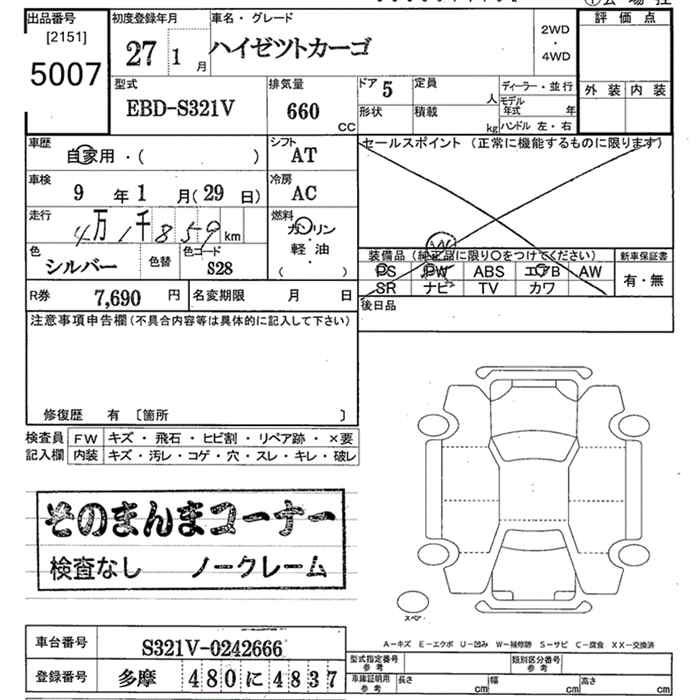 出品番号
[2151]
5007
初度登録年月
27 1 月
車名・グレード
ハイゼツトカーゴ
2WD
・
4WD
評価点
外装 内装
型式
EBD-S321V
排気量
660 CC
ドア 5
形状
定員 人
積載 kg
ディーラー・並行
モデル年式 年
ハンドル 左・右
車歴
自家用・( )
シフト
AT
車検
9 年 1 月(29 日)
冷房
AC
走行
4万1千859km
燃料
ガソリン
・
軽油
( )
色
シルバー
色替
色コード
S28
R券 7,690 円
名変期限 月 日
セールスポイント(正常に機能するものに限ります)
装備品(純正品に限り〇をつけてください)
PS PW ABS エアB AW
SR ナビ TV カワ
新車保証書
有・無
後日品
注意事項申告欄(不具合内容等は具体的に記入して下さい)
修復歴 有 〔箇所 〕
検査員記入欄
FW キズ・飛石・ヒビ割・リペア跡・×要
内装 キズ・汚レ・コゲ・穴・スレ・キレ・破レ
そのまんまコーナー
検査なし ノークレーム
スペア
A-キズ E-エクボ U-凹み W-補修跡 S-サビ C-腐食 XX-交換済
車台番号 S321V-0242666
登録番号 多摩 480 に 4837
型式指定番号 参考
類別区分番号 参考
車庫証明用 参考
長さ cm
幅 cm
高さ cm